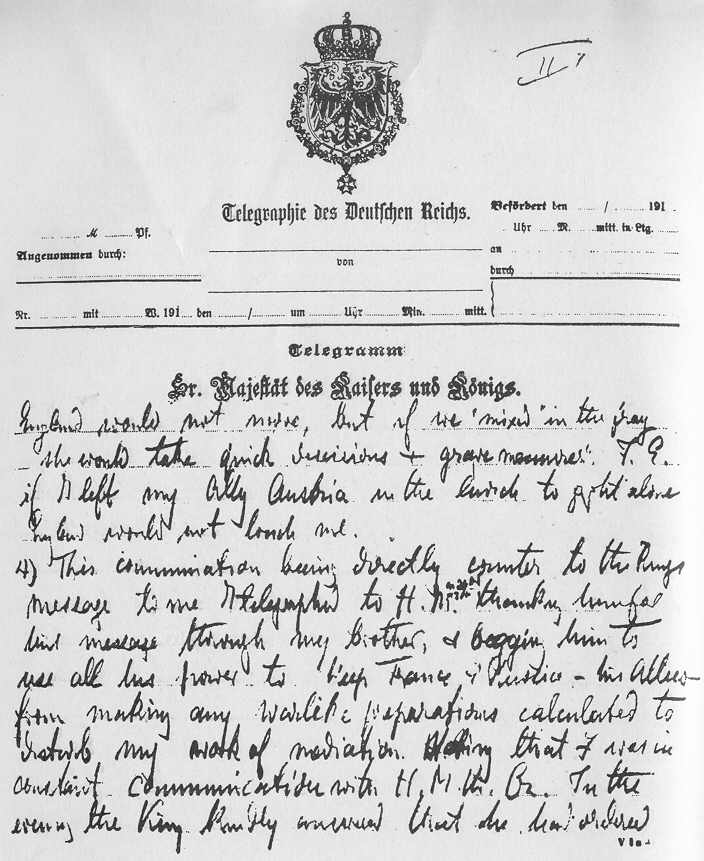 II
Telegraphie des Deutschen Reichs.
Befördert den / 191
Uhr M. mitt. in Ltg.
an
durch
M Pf.
Angenommen durch:
von
Nr. mit W. 191 den / um Uhr Min. mitt.
Telegramm
Sr. Majestät des Kaisers und Königs.
England would not move, but if we "mixed" in the fray
she would take quick decisions & grave measures". I. E.
if I left my Ally Austria in the lurch to fight alone
England would not touch me.
4) This communication being directly counter to the Kings
message to me I telegraphed to H. M. thanking him for
his message through my brother, & begging him to
use all his power to keep France & Russia – his Allies –
from making any warlike preparations calculated to
disturb my work of mediation. that I was in
constant communication with H. M. In the
evening the King kindly answered that he had ordered